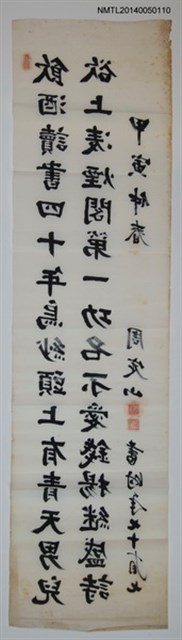 NMTL20140050110
飲酒讀書四十年烏紗頭上有青天男兒
欲上凌煙閣第一功名不愛錢楊繼盛詩
甲寅仲春 周定山 書時年七十有七